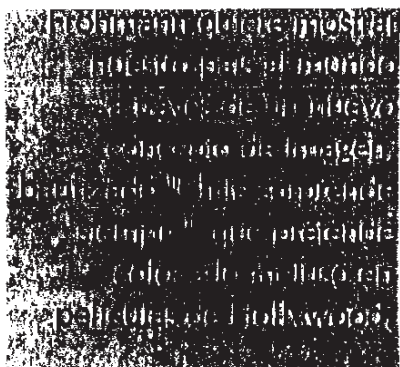 Frohmann quiere mostrar
nuestro país al mundo
a través de un nuevo
concepto de imagen,
bautizado "Chile sorprende
siempre" que pretende
colocarlo incluso en
películas de Hollywood.